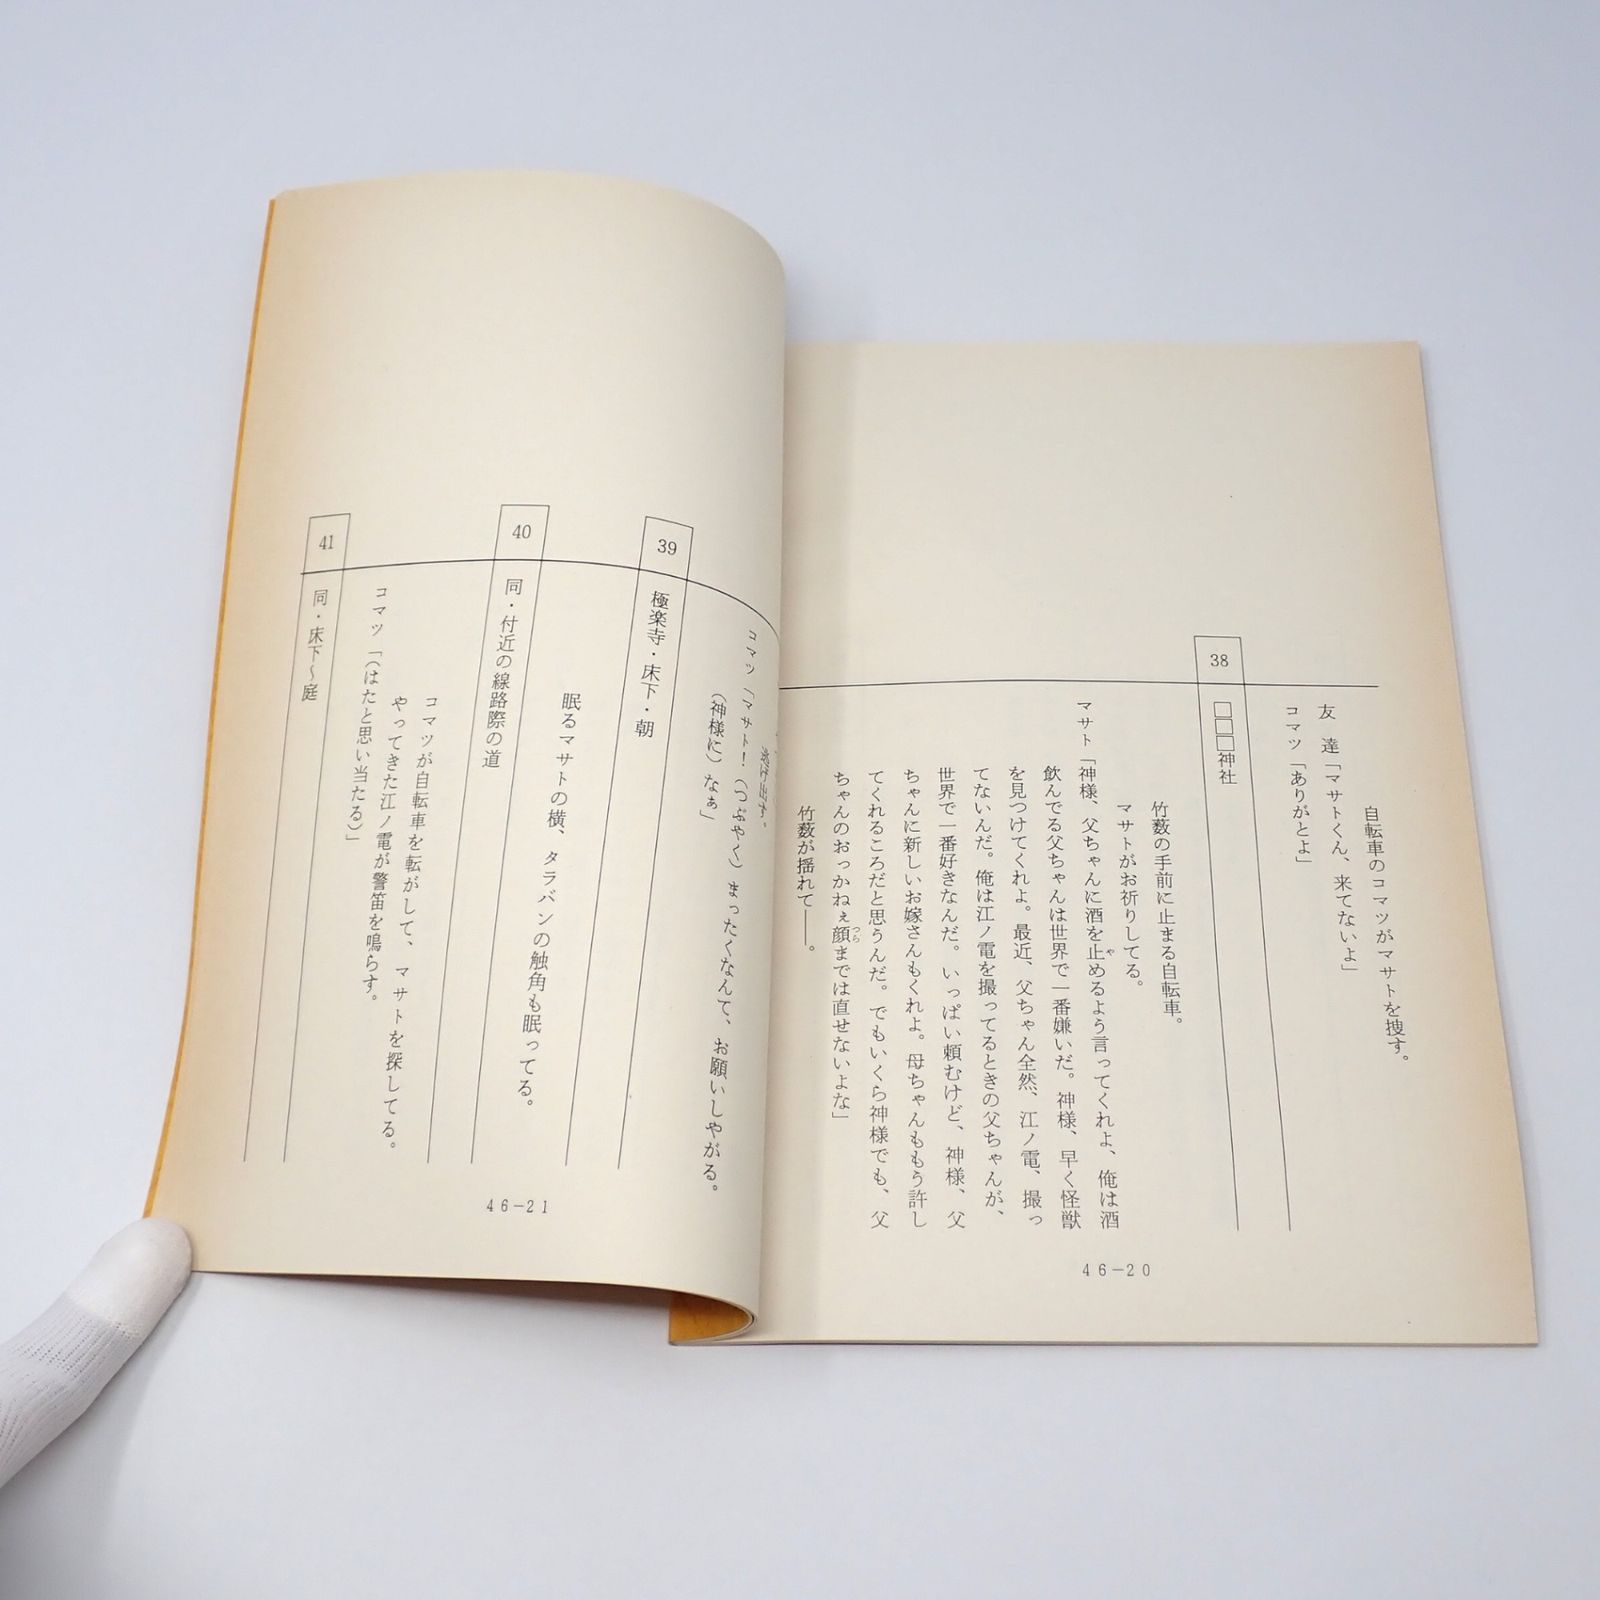 自転車のコマツがマサトを捜す。
友　達「マサトくん、来てないよ」
コマツ「ありがとよ」
38
□□□神社
竹薮の手前に止まる自転車。
マサトがお祈りしてる。
マサト「神様、父ちゃんに酒を止めるよう言ってくれよ、俺は酒
や
飲んでる父ちゃんは世界で一番嫌いだ。神様、早く怪獣
を見つけてくれよ。最近、父ちゃん全然、江ノ電、撮っ
てないんだ。俺は江ノ電を撮ってるときの父ちゃんが、
世界で一番好きなんだ。いっぱい頼むけど、神様、父
ちゃんに新しいお嫁さんもくれよ。母ちゃんももう許し
てくれるころだと思うんだ。でもいくら神様でも、父
ちゃんのおっかねぇ顔までは直せないよな」
つら
竹薮が揺れて――。
46-20
逃げ出す。
コマツ「マサト！（つぶやく）まったくなんて、お願いしやがる。
（神様に）なぁ」
39
極楽寺・床下・朝
眠るマサトの横、タラバンの触角も眠ってる。
40
同・付近の線路際の道
コマツが自転車を転がして、マサトを探してる。
やってきた江ノ電が警笛を鳴らす。
コマツ「（はたと思い当たる）」
41
同・床下～庭
46-21